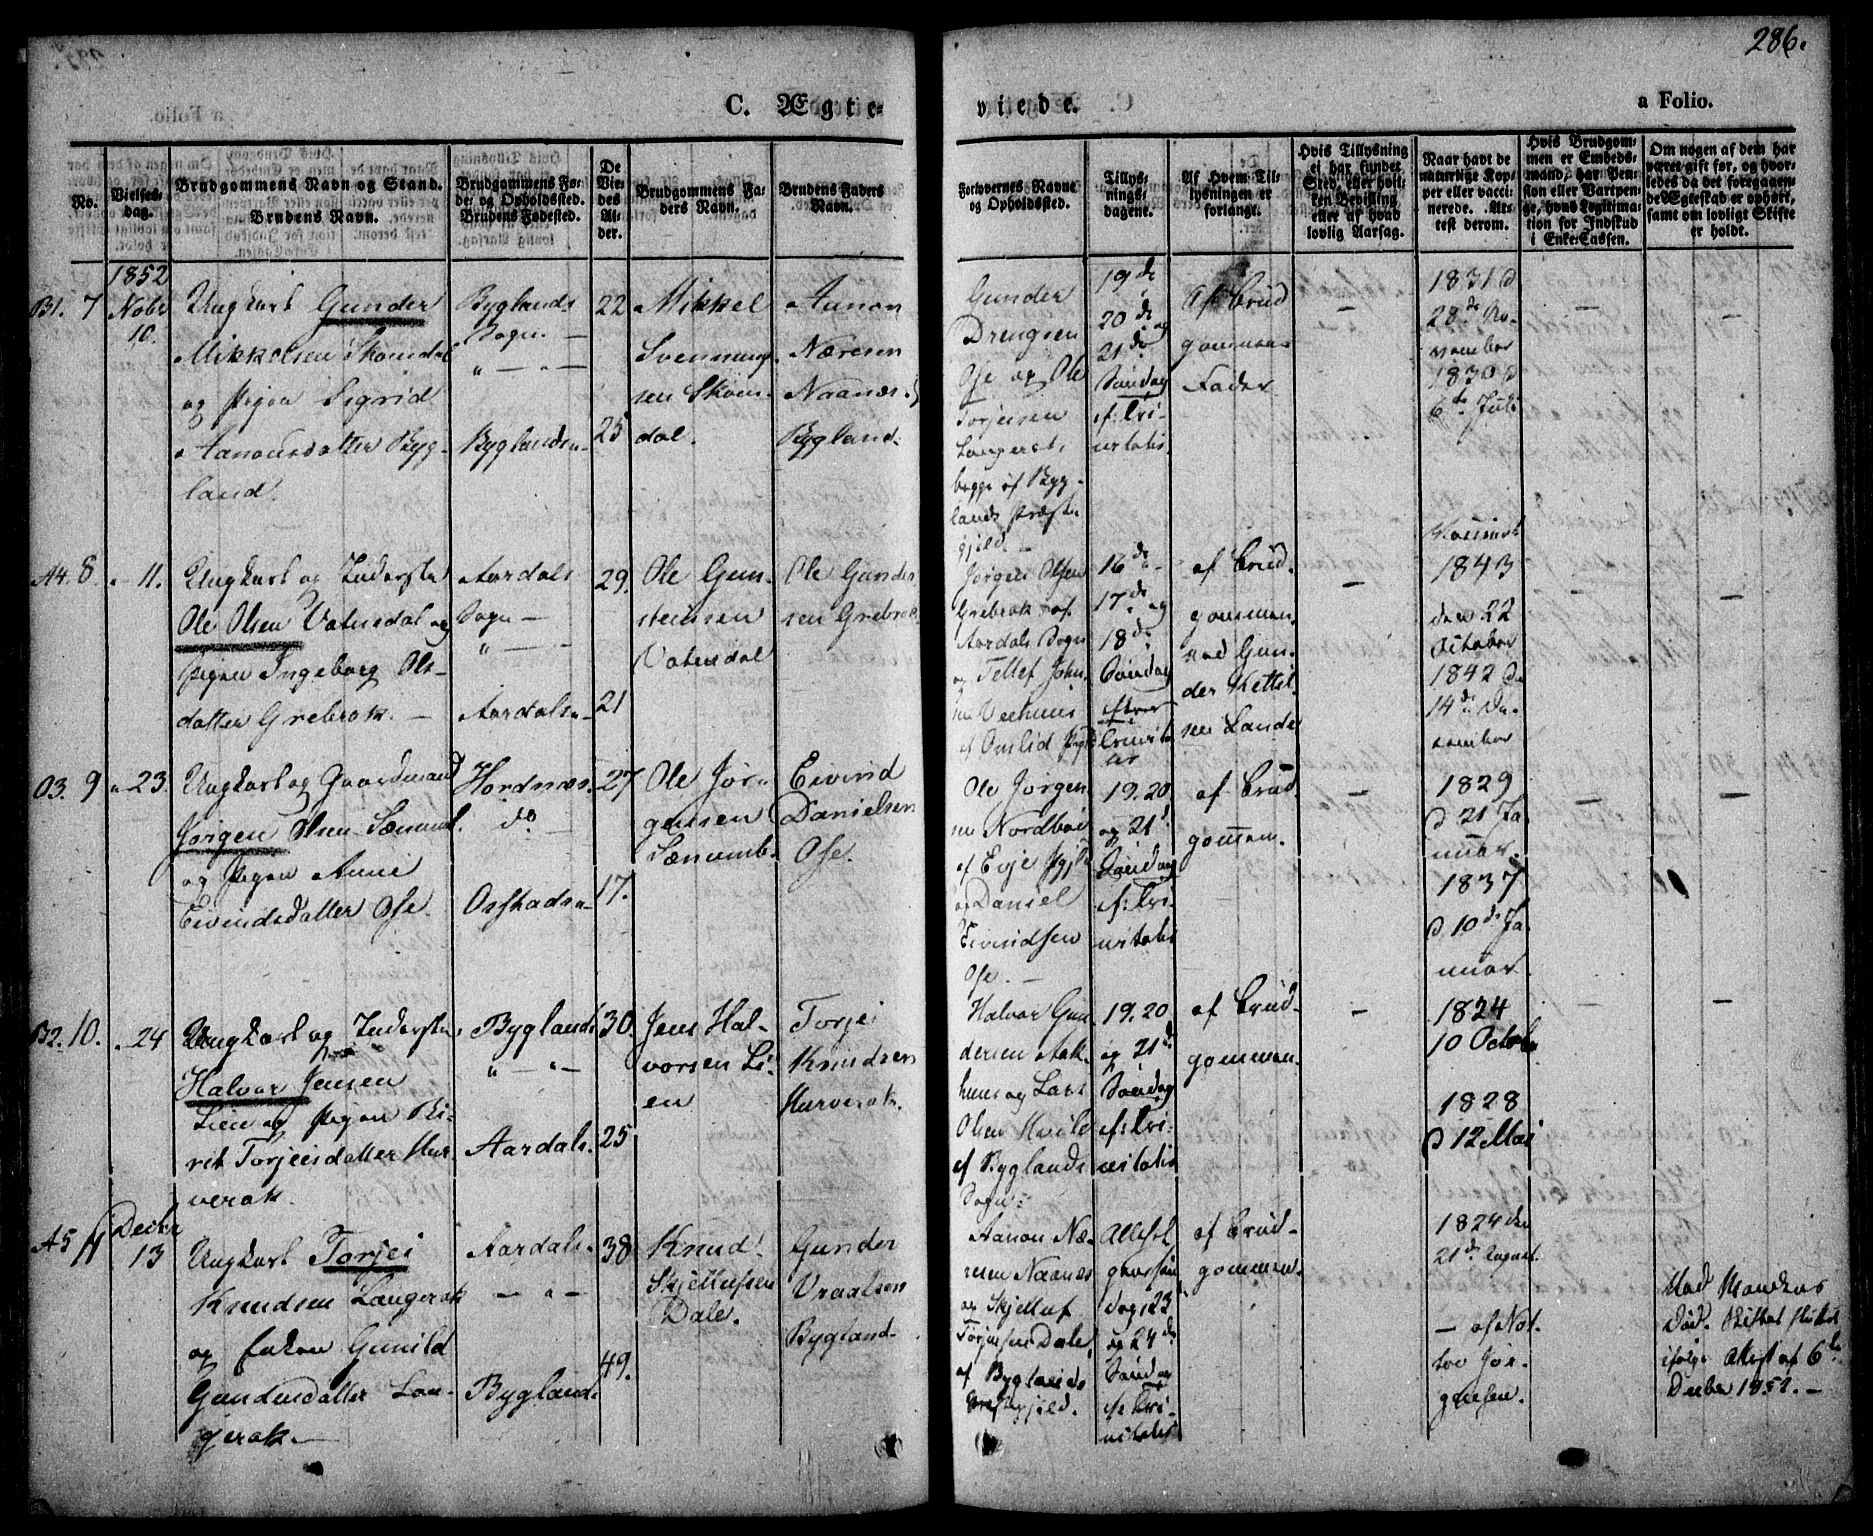 286.
C. Ægte-
viede.
a Folio.
No.
Vielses-
dag.
Brudgommens Navn og Stand.
Brudens Navn.
Brudgommens Fø-
de- og Opholdssted.
Brudens Fødested.
De
Vie-
des
Al-
der.
Brudgommens Fa-
ders Navn.
Brudens Faders
Navn.
Forlovernes Navne
og Opholdssted.
Tillys-
nings-
dagene.
Af Hvem Til-
lysningen er
forlangt.
Hvis Tillysning
ei har fundet
Sted, efter hvil-
ken Bevilling
eller af hvad
lovlig Aarsag.
Naar havt de
naturlige Kop-
per eller vacci-
nerede. At-
test derom.
Hvis Brudgom-
men er Embeds-
mand, har Pen-
sion eller Vartpen-
ge, hvad Legitima-
tion for Indskud
i Enke-Cassen.
Om nogen af dem har
været gift før, og hvor-
ledes da det foregaaen-
de Ægteskab er ophørt,
samt om lovligt Skifte
er holdt.
B1. 7
1852
Nobr
10.
Ungkarl Gunder
Mikkelsen Skomdal
og Pigen Sigrid
Aanonsdatter Byg-
land.
Byglands
Sogn
Byglands
22
25
Mikkel
Svennung-
sen Skom-
dal.
Aanon
Næresen
Naanes
Bygland.
Gunder
Drengsen
Ose og Ole
Torjusen
Langerak
begge af Byg-
lands Præste-
gjeld.
19de
20de og
21de
Søndag
ef: Tri-
nitatis
af Brud
gommens
Fader
1831 d
28de No-
vember
1830 d
6te Juli
A4. 8.
11.
Ungkarl og Inderste
Ole Olsen Vatnedal og
Pigen Ingeborg Ols-
datter Grebrok.
Aardals
Sogn
Aardals
29.
21
Ole Gun-
stensen
Vatnedal
Ole Gunder
sen Grebrok
Jørgen Olsen
Grebrok af
Aardals Sogn
og Tellef John-
16de
17de og
18de
Søndag
efter
af Brud-
gommen
ved Gun-
der Kettil-
sen Lande
1843
den 22
October
1842 d
14de De-
cember
O3. 9
23.
Ungkarl og Gaardmand
Jørgen Olsen
og Pigen Anne
Eivindsdatter Ose.
Hordnæs
do
Osstads
27
17.
Ole Jør-
gensen
Eivind
Danielsen
Ose.
Ole Jørgen
sen
af Evje Pgjld
og Daniel
Eivindsen
Ose.
19. 20
og 21
Søndag
ef: Tri-
nitatis
af Brud-
gommen.
1829
d 21 Ja-
nuar.
1837
d 10de Ja-
nuar.
B2. 10.
24
Ungkarl og Inderste
Halvor Jensen
Lien og Pigen Bi-
rit Torjeisdatter Hur
verak.
Byglands
Aardals.
30.
25
Jens Hal-
vorsen Li-
en
Torjei
Knudsen
Hurverak.
Halvor Gun
dersen
og Lars
Olsen
af Byglands
Sogn
19. 20
og 21de
Søndag
ef: Tri-
nitatis
af Brud-
gommen.
1824
10 October
1828
d 12 Mai
A5 11
Decbr
13
Ungkarl Torjei
Knudsen Langerak
og Enken Gunild
Gundersdatter Lan-
gerak.
Aardals.
Byglands
38
49.
Knud
Skjellefsen
Dale.
Gunder
Vraalsen
Bygland.
Aanon Næ-
resen Naanes
og Skjellef
Torjusen Dale,
af Byglands
Præstegjeld.
Allehel
gensen
dag, 23
og 24de
Søndag
ef: Tri-
nitatis
af Brud-
gommen.
1824 den
21de August.
af Not.
tov Jør-
gensen.
Ved Mandens
Død. Skiftet sluttet
ifølge Attest af 6te
Decbr 1852.